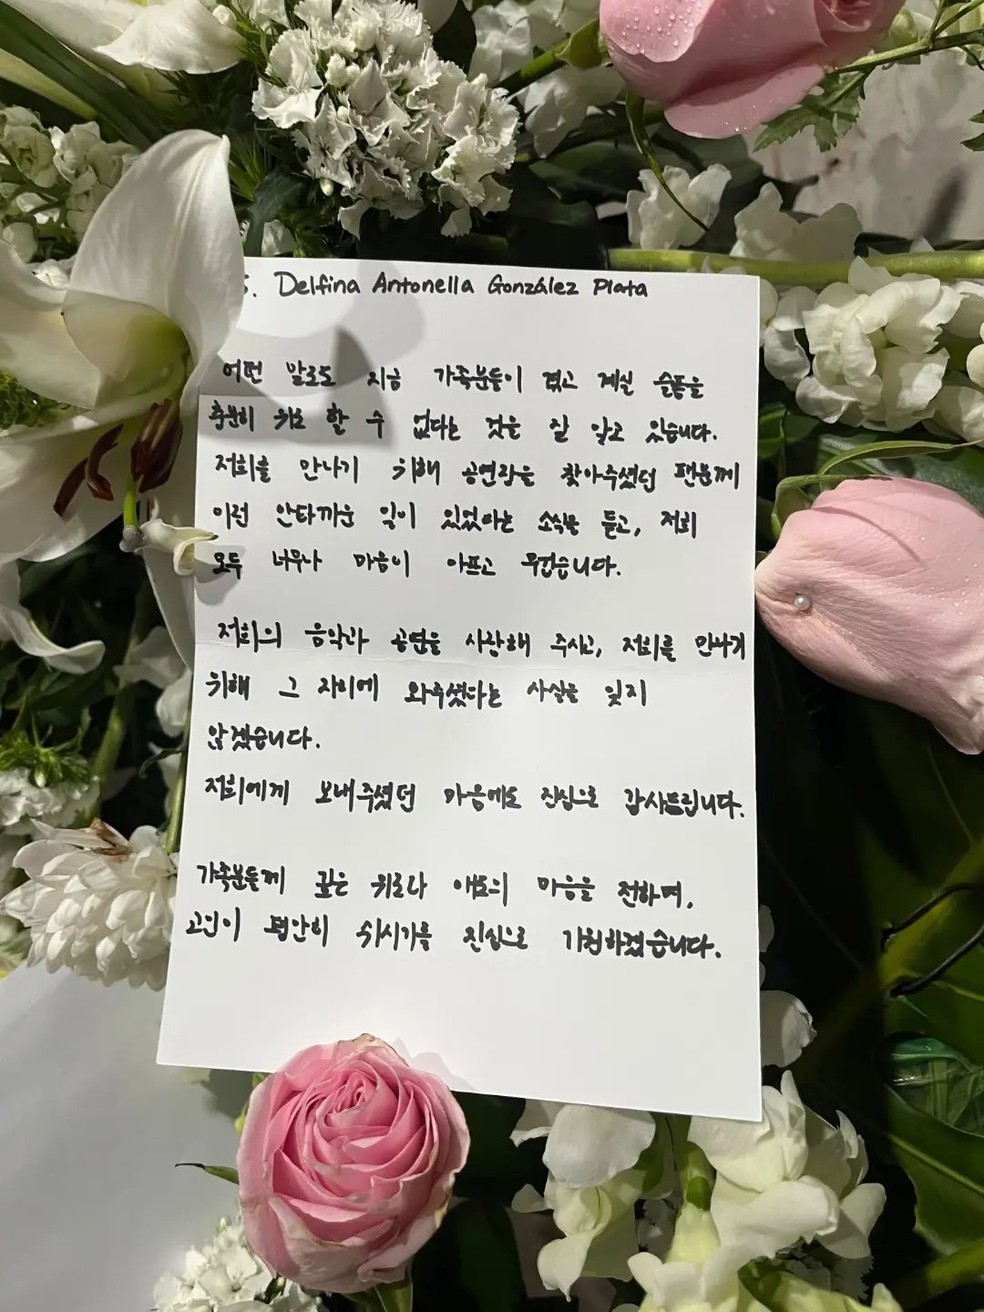 S. Delfina Antonella González Plata
어떤 말로도 지금 가족분들이 겪고 계실 슬픔을
충분히 위로 할 수 없다는 것을 잘 알고 있습니다.
저희를 만나기 위해 공연장을 찾아주셨던 팬분께
이런 안타까운 일이 있었다는 소식을 듣고, 저희
모두 너무나 마음이 아프고 무겁습니다.
저희의 음악과 공연을 사랑해 주시고, 저희를 만나기
위해 그 자리에 와주셨다는 사실을 잊지
않겠습니다.
저희에게 보내주셨던 마음에도 진심으로 감사드립니다.
가족분들께 깊은 위로와 애도의 마음을 전하며,
고인이 평안히 쉬시기를 진심으로 기원하겠습니다.